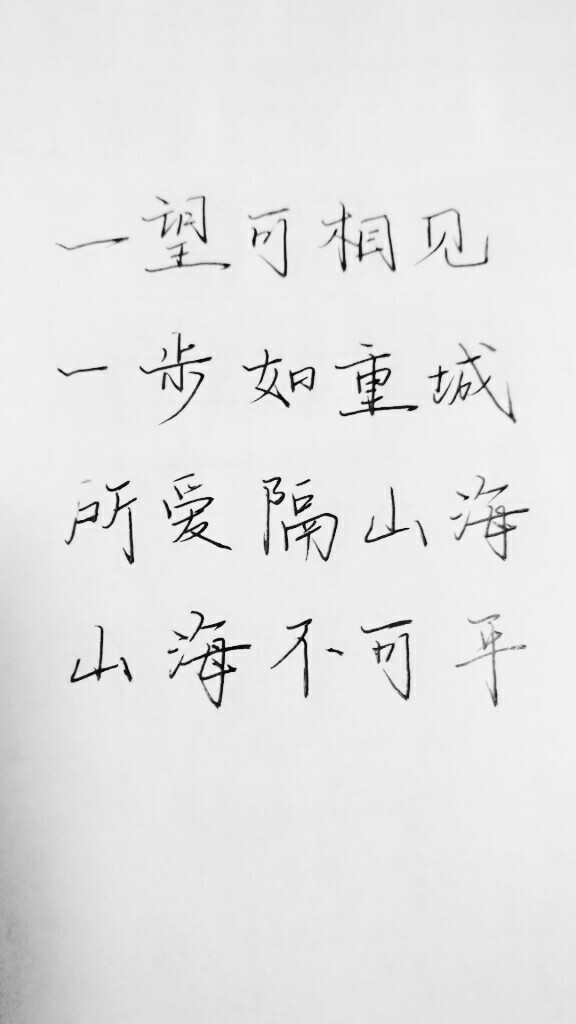 一望可相见
一步如重城
所爱隔山海
山海不可平